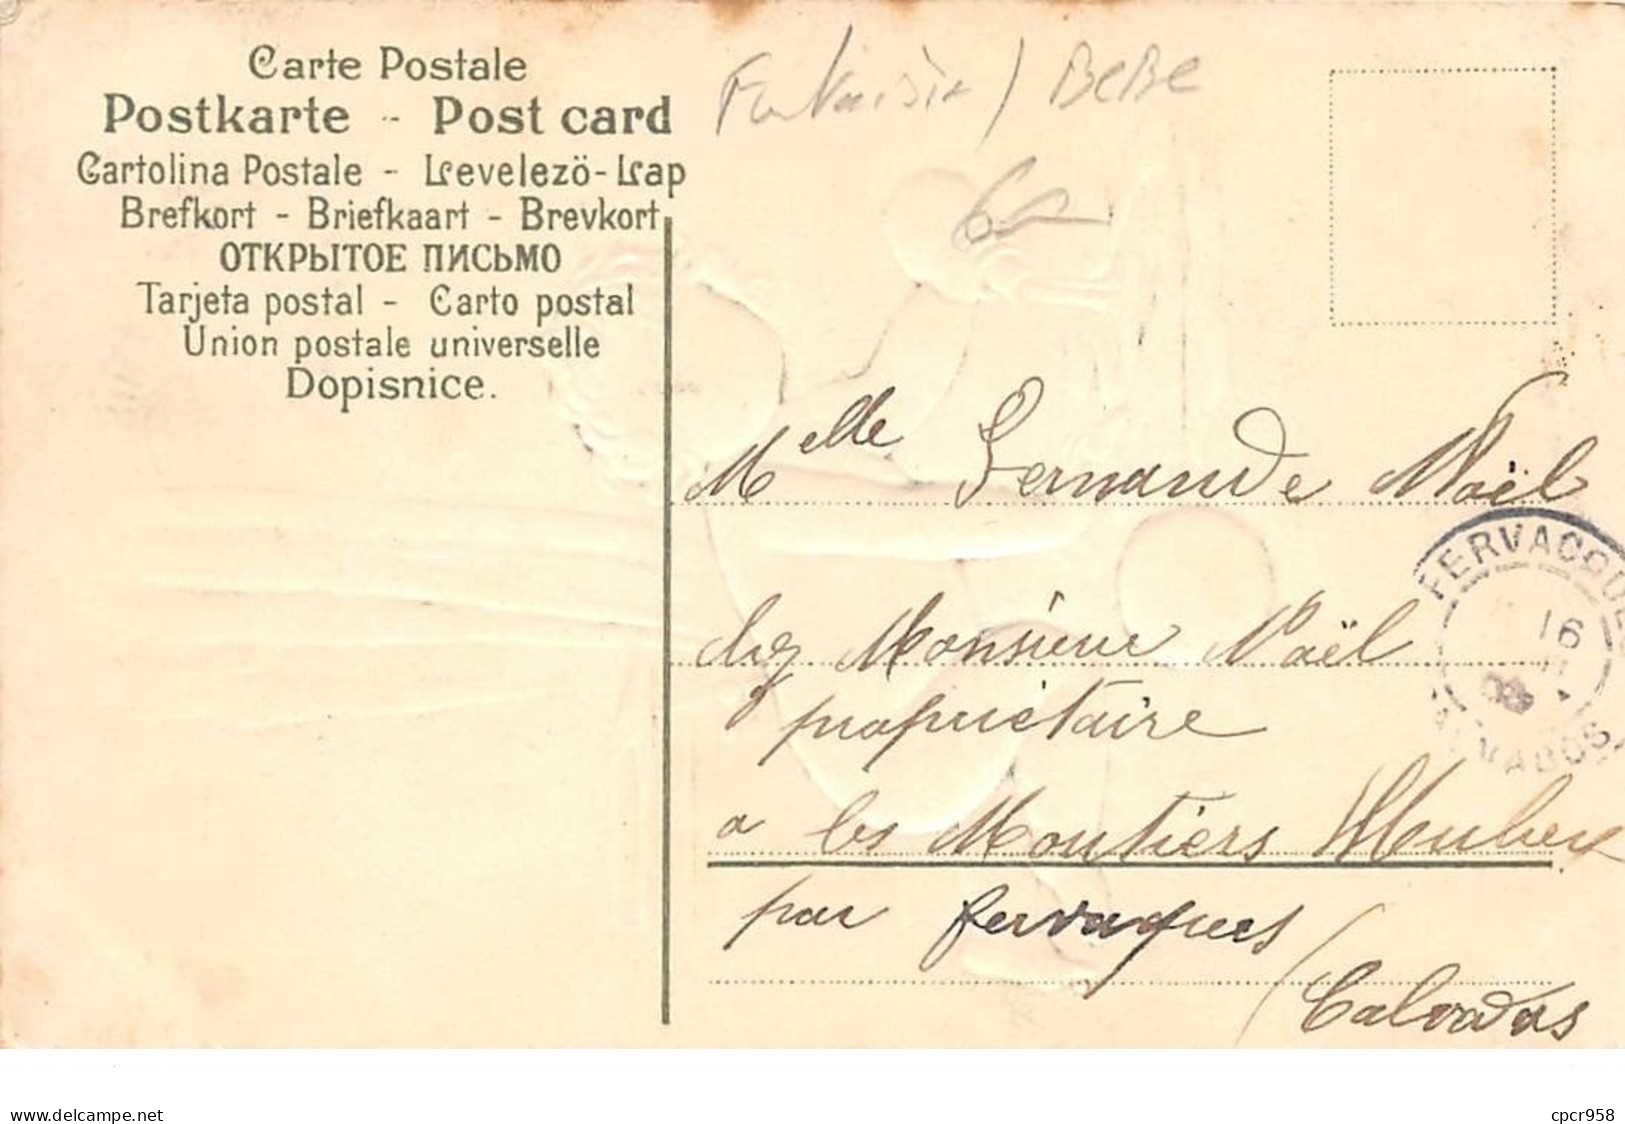 Carte Postale
Postkarte - Post card
Cartolina Postale - Levelezö-Lap
Brefkort - Briefkaart - Brevkort
ОТКРЫТОЕ ПИСЬМО
Tarjeta postal - Carto postal
Union postale universelle
Dopisnice.
Fantaisie / BEBE
Melle Fernande Noël
chez Monsieur Noël
propriétaire
a les Moutiers Hubert
par fervaques
(Calvados
FERVACQUES
16
08
CALVADOS
www.delcampe.net
cpcr958